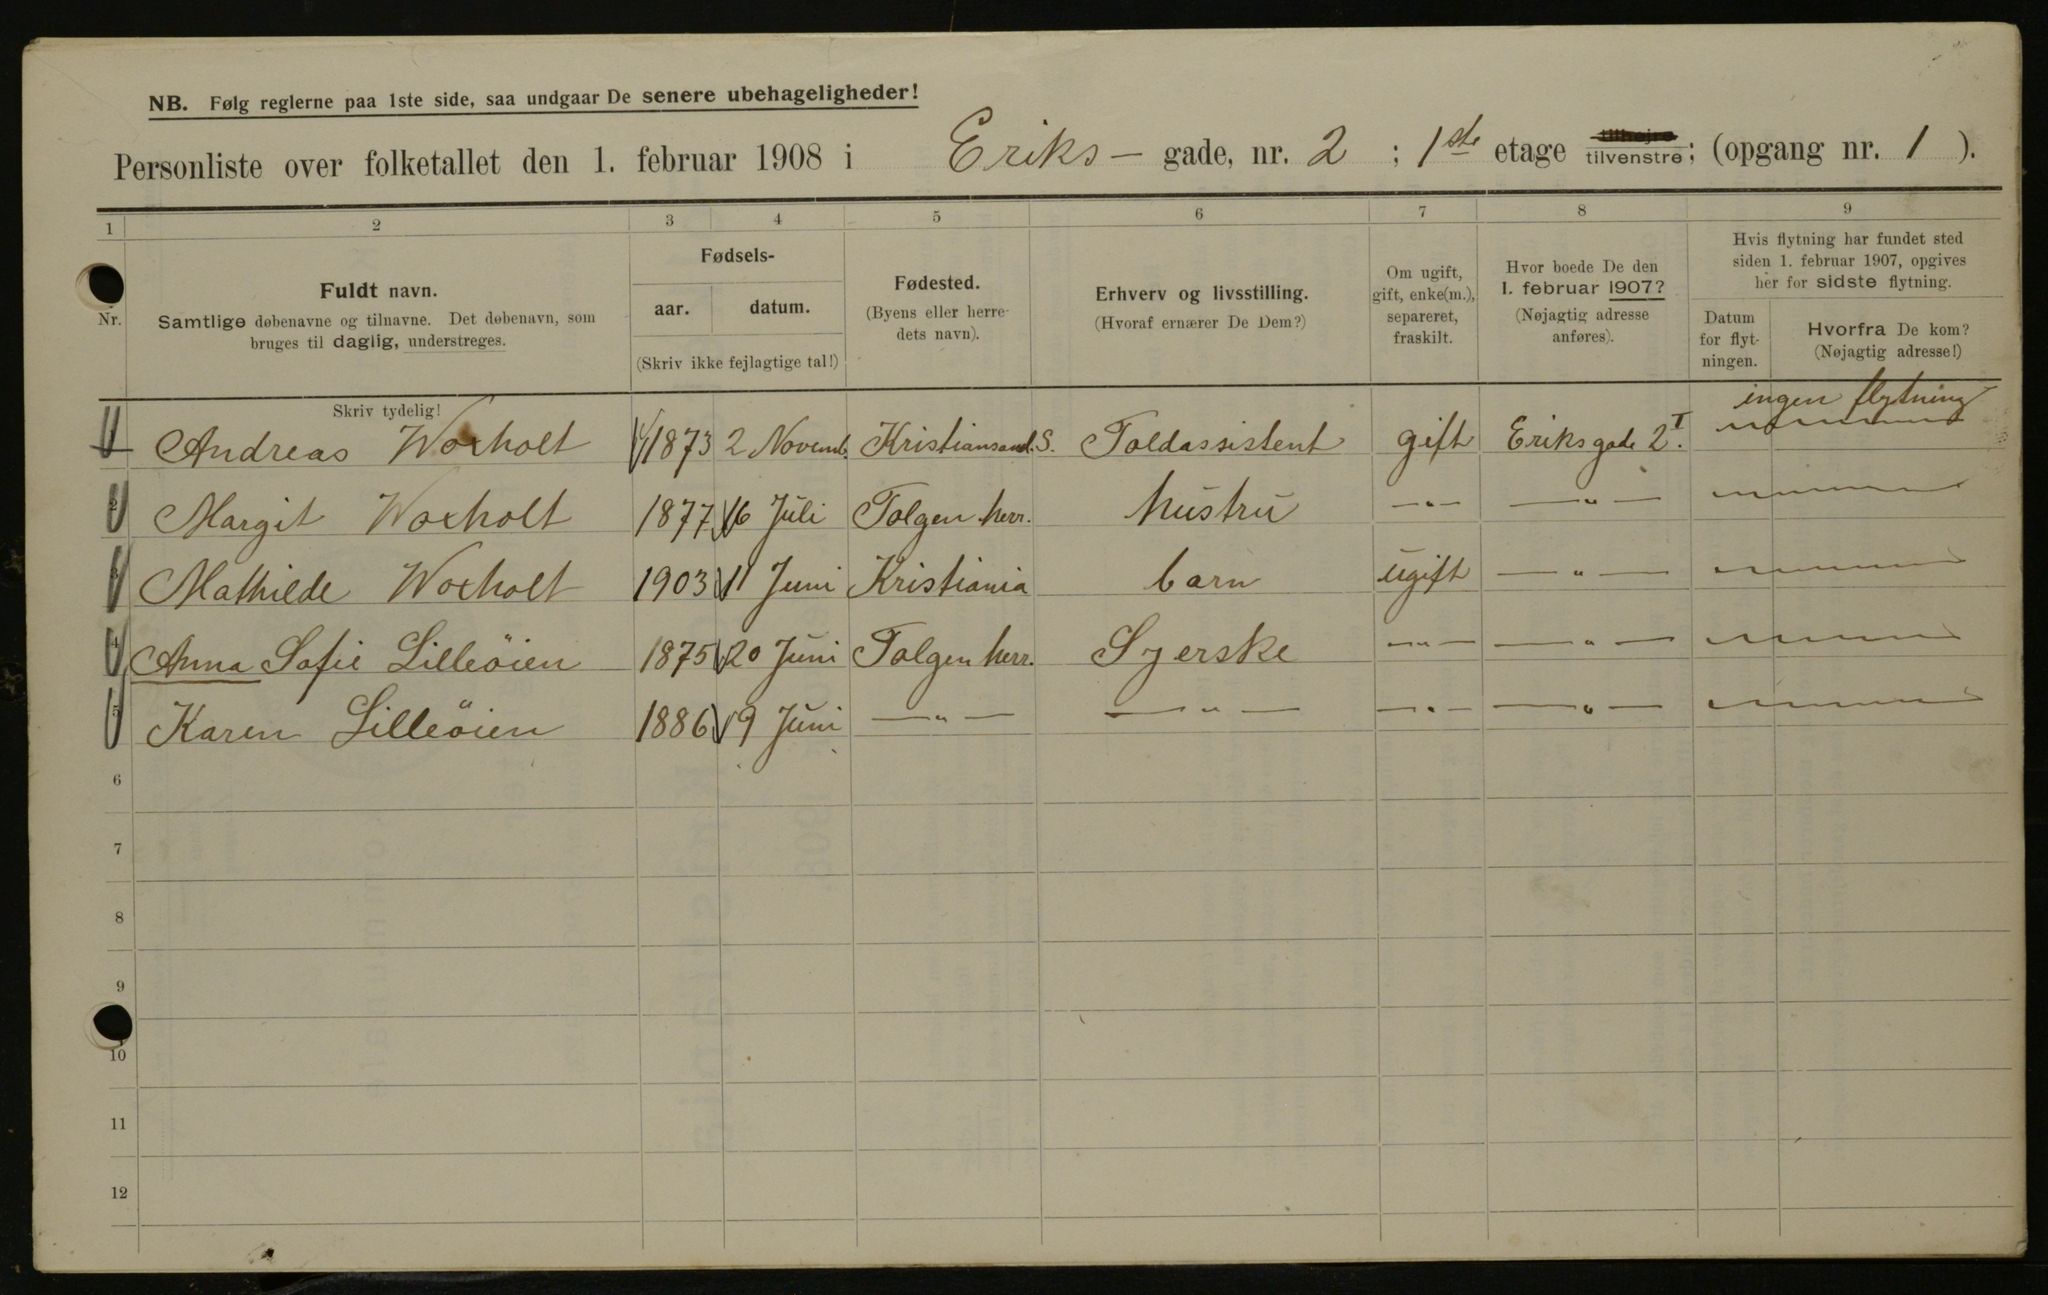 NB. Følg reglerne paa 1ste side, saa undgaar De senere ubehageligheder!
Personliste over folketallet den 1. februar 1908 i Eriks - gade, nr. 2 ; 1ste etage tilhøjre tilvenstre; (opgang nr. 1 ).
1 2 3 4 5 6 7 8 9
Nr.
Fuldt navn.
Samtlige døbenavne og tilnavne. Det døbenavn, som
bruges til daglig, understreges.
Fødsels-
aar. datum.
(Skriv ikke fejlagtige tal!)
Fødested.
(Byens eller herre-
dets navn).
Erhverv og livsstilling.
(Hvoraf ernærer De Dem?)
Om ugift,
gift, enke(m.),
separeret,
fraskilt.
Hvor boede De den
1. februar 1907?
(Nøjagtig adresse
anføres).
Hvis flytning har fundet sted
siden 1. februar 1907, opgives
her for sidste flytning.
Datum
for flyt-
ningen.
Hvorfra De kom?
(Nøjagtig adresse!)
Skriv tydelig!
ingen flytning
Andreas Woxholt 1873 2 Novemb. Kristiansand. S. Toldassistent gift Eriksgade 2 I.
Margit Woxholt 1877 16 Juli Tolgen herr. hustru —„— —„—
Mathilde Woxholt 1903 11 Juni Kristiania barn ugift —„—
4 Anna Sofie Lilleöien 1875 20 Juni Tolgen herr. Syerske —„— —„—
5 Karen Lilleöien 1886 9 Juni —„— —„— —„— —„—
6
7
8
9
10
11
12